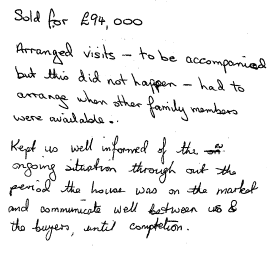 Sold for £94,000
Arranged visits – to be accompanied
but this did not happen – had to
arrange when other family members
were available.
Kept us well informed of the
ongoing situation through out the
period the house was on the market
and communicate well between us &
the buyers, until completion.